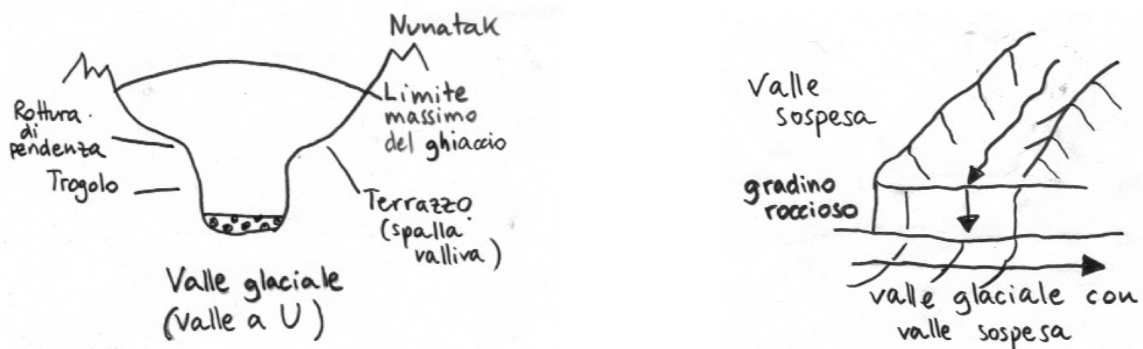 Nunatak
Rottura
di
pendenza
Trogolo
Limite
massimo
del ghiaccio
Terrazzo
(spalla
valliva)
Valle glaciale
(Valle a U)
Valle
sospesa
gradino
roccioso
valle glaciale con
valle sospesa